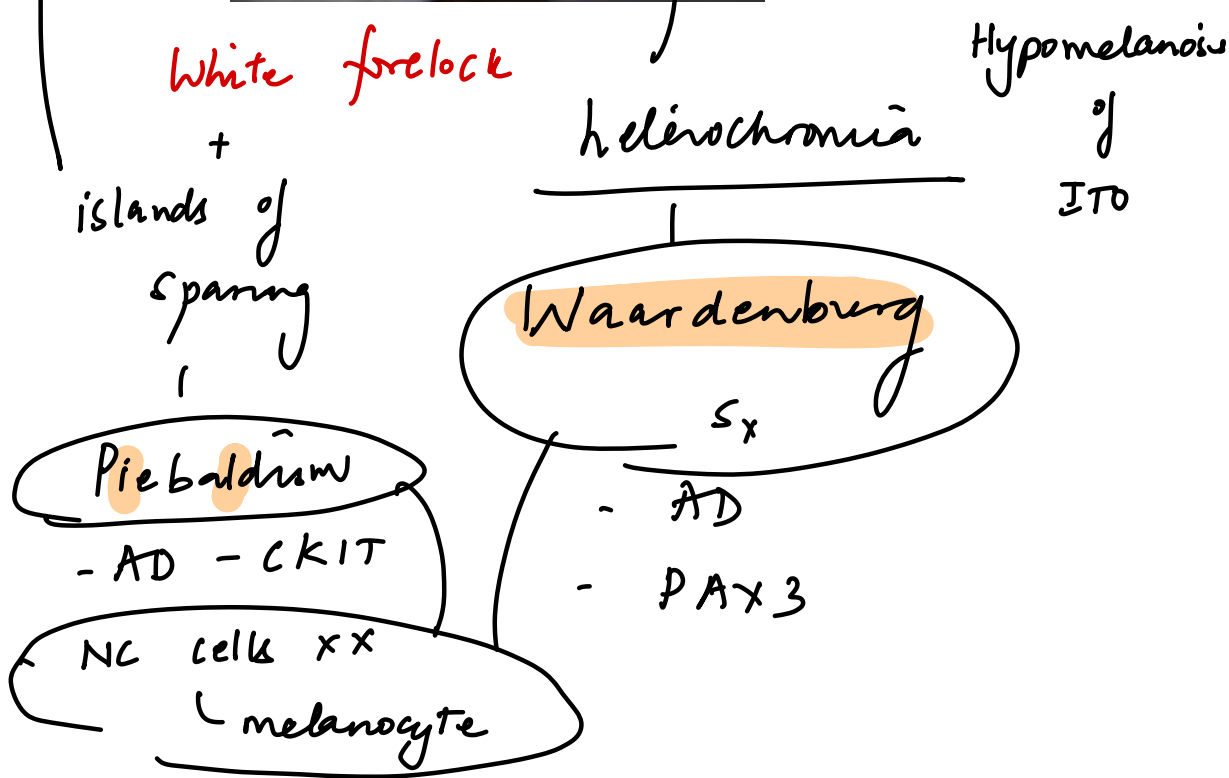 White forelock
+
islands of
sparing
Piebaldism
- AD - CKIT
- NC cells xx
melanocyte
heterochromia
Waardenburg
Sx
- AD
- PAX3
Hypomelanosis
of
ITO